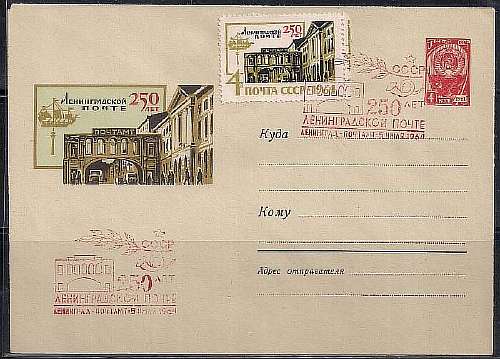 Ленинградской
почте
250
лет
ПОЧТАМТ
Ленинградской
почте
250
лет
4
ПОЧТА СССР 1964
СССР
250 ЛЕТ
ЛЕНИНГРАДСКОЙ ПОЧТЕ
ЛЕНИНГРАД-ПОЧТАМТ-5 ИЮЛЯ 1964
4
Куда
Кому
Адрес отправителя
СССР
250 ЛЕТ
ЛЕНИНГРАДСКОЙ ПОЧТЕ
ЛЕНИНГРАД-ПОЧТАМТ-5 ИЮЛЯ 1964